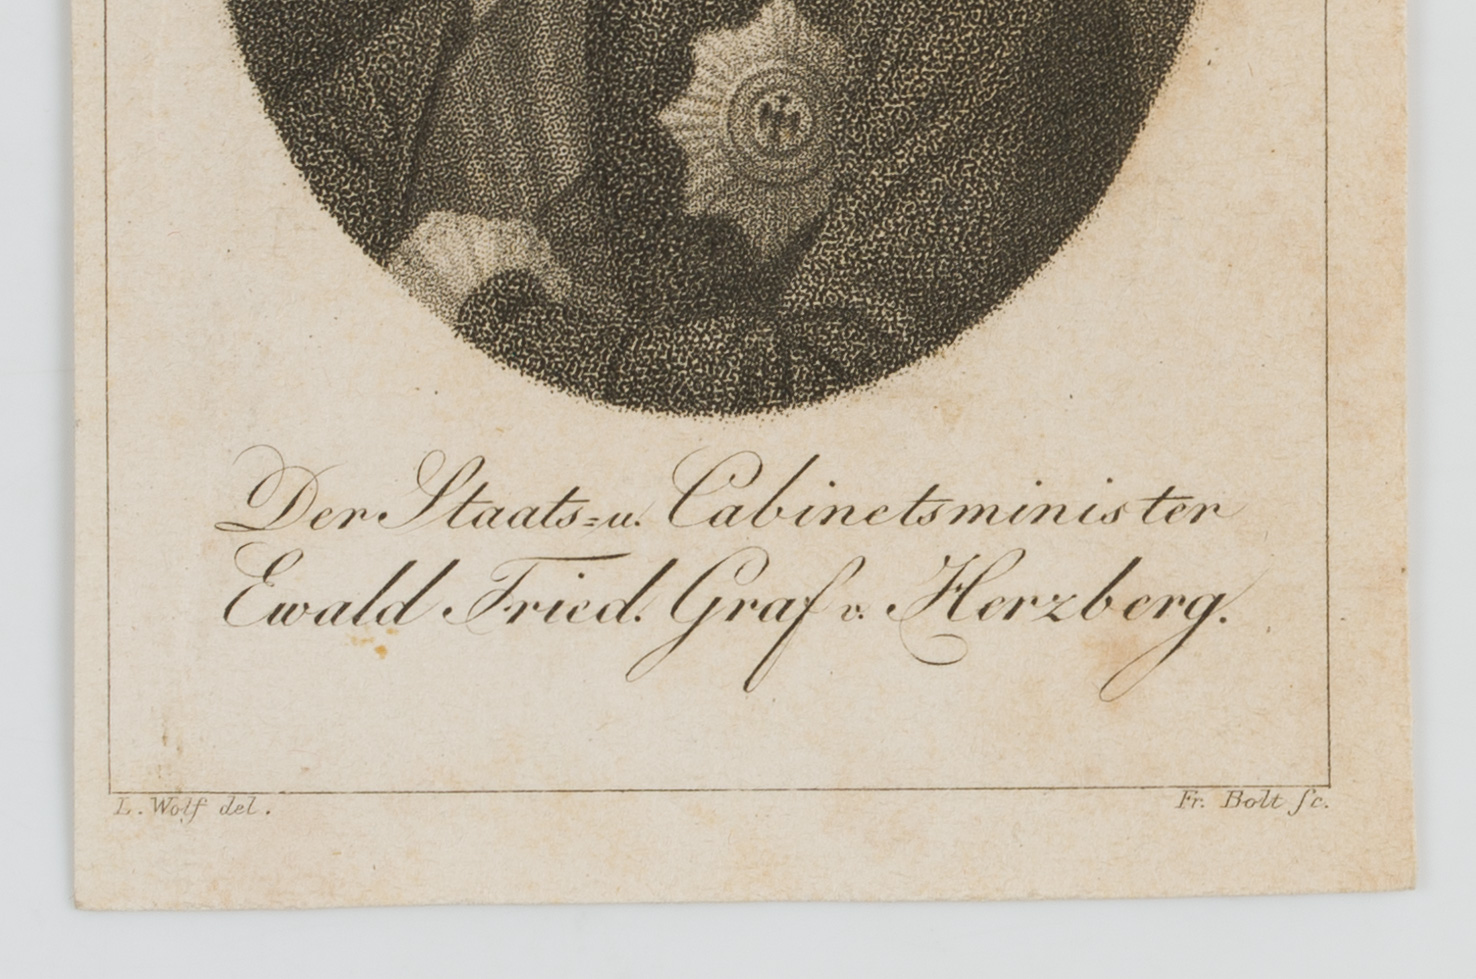 Der Staats=u. Cabinetsminister
Ewald Fried. Graf v. Herzberg.
L. Wolf del.
Fr. Bolt ſc.